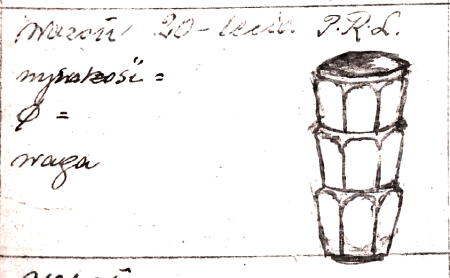 Wazon 20-lecia P.R.L.
wysokość =
φ =
waga